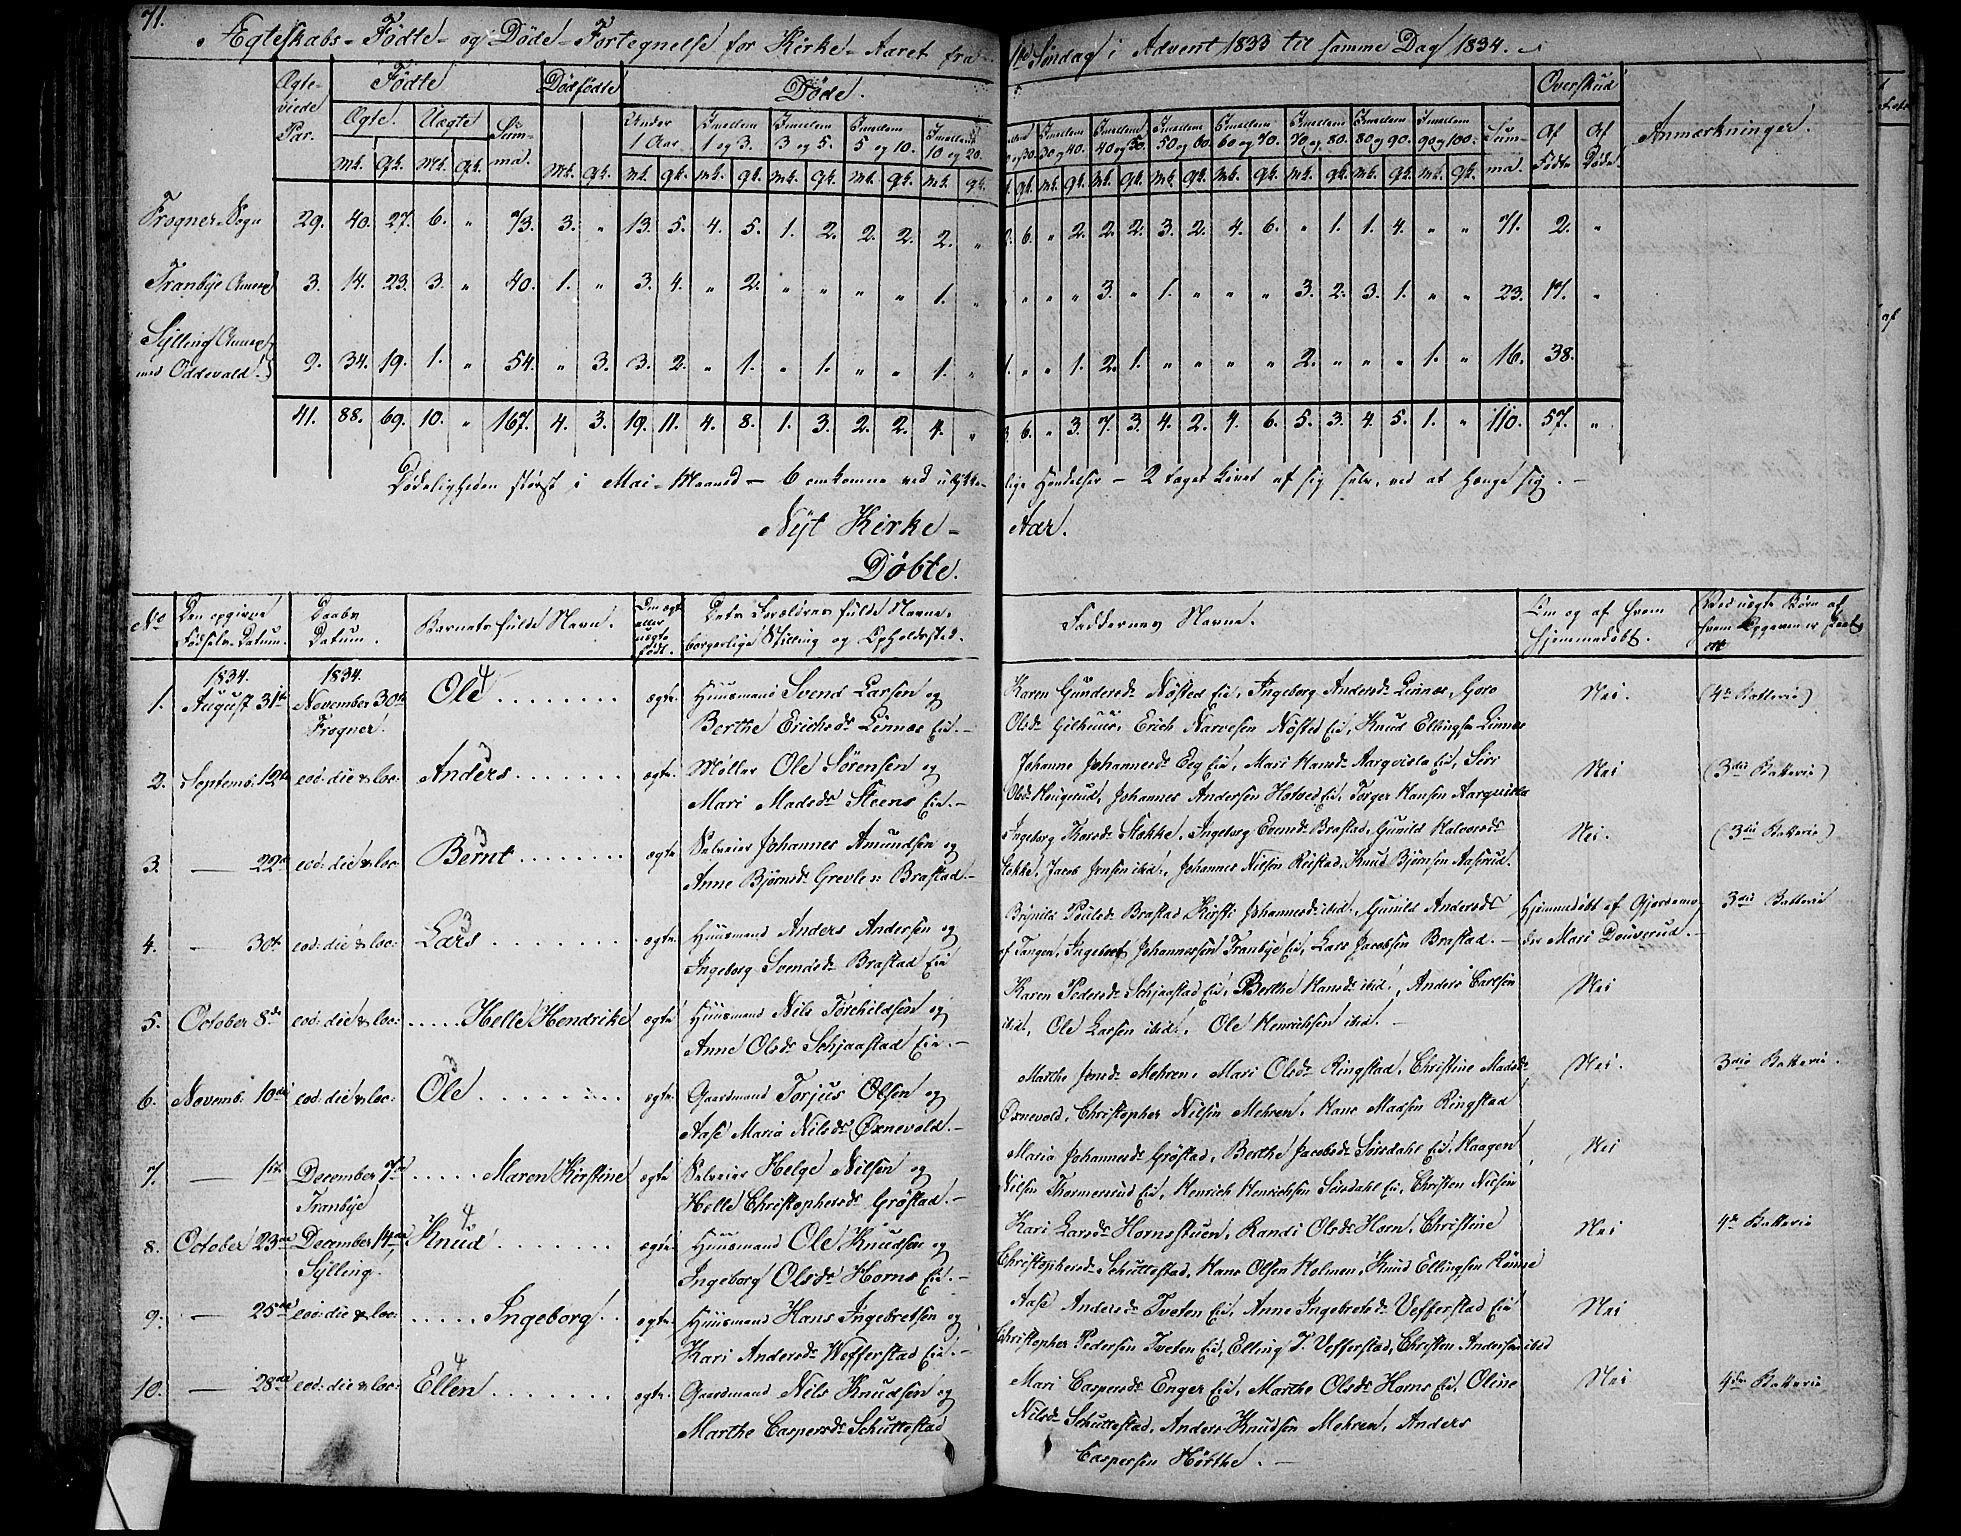 71.
Ægteskabs- Födte- og Döde-Fortegnelse for Kirke-Aaret fra 1te Söndag i Advent 1833 til samme Dag 1834.
Ægteviede Par. Födte Dödfödte Döde. Overskud Anmærkninger.
Ægte. Uægte Summa. Under 1 Aar. Imellem 1 og 3. Imellem 3 og 5. Imellem 5 og 10. Imellem 10 og 20. Imellem 30 og 40. Imellem 40 og 50. Imellem 50 og 60. Imellem 60 og 70. Imellem 70 og 80. Imellem 80 og 90. Imellem 90 og 100. Summa. Af Födte Af Döde.
Mk. Qk. Mk. Qk. Mk. Qk. Mk. Qk. Mk. Qk. Mk. Qk. Mk. Qk. Mk. Qk. Qk. Mk. Qk. Mk. Qk. Mk. Qk. Mk. Qk. Mk. Qk. Mk. Qk. Mk. Qk.
Frogner-Sogn 29. 40. 27. 6. " 73. 3. " 13. 5. 4. 5. 1. 2. 2. 2. 2. " 6. " 2. 2. 2. 3. 2. 4. 6. " 1. 1. 4. " " 71. 2. "
Tranbye Annex 3. 14. 23. 3. " 40. 1. " 3. 4. " 2. " " " " 1. " " " " 3. " 1. " " " 3. 2. 3. 1. " " 23. 17. "
Sylling Annex
med Oddevald. 9. 34. 19. 1. " 54. " 3. 3. 2. " 1. " 1. " " 1. " 1. " " 1. 2. 1. " " " " 2. " " " 1. " 16. 38.
41. 88. 69. 10. " 167. 4. 3. 19. 11. 4. 8. 1. 3. 2. 2. 4. " 3. 6. " 3. 7. 3. 4. 2. 4. 6. 5. 3. 4. 5. 1. " 110. 57. "
Dödeligheden störst i Mai-Maaned - 6 omkomne ved ulykkelige Hendelser - 2 taget Livet af sig selv, ved at hænge sig. -
Nyt Kirke-Aar.
Döbte.
No Den opgivne Födsels-Datum. Daabs Datum. Barnets fulde Navn. Om ægte eller uægte födt. Dets Forældres fulde Navne, borgerlige Stilling og Opholdssted. Faddernes Navne. Om og af hvem hjemmedöbt. Ved uægte Börn af hvem Opgaven er skeet
1834. 1834.
1. August 31te November 30te Ole 4 ægte. Huusmand Svend Larsen og Karen Gundersd: Nösted Eie, Ingeborg Andersd: Linnes, Goro Nei. (4de Batterie)
Frogner. Berthe Erichsd: Linnes Eie. - Olsd: Gilhuus, Erich Narvesen Nösted Eie, Knud Ellingsen Linnes
2. Septemb: 12te eod: die & loc: Anders 3 ægte. Möller Ole Sörensen og Johanne Johannesd: Eeg Eie, Mari Hansd: Aarqvisla Eie, Siri Nei (3die Batterie)
Mari Madsd: Steens Eie. - Olsd: Haugerud, Johannes Andersen Hotved Eie, Torger Hansen Aarqvisla
3. — 22de eod: die & loc: Bernt 3 ægte Selveier Johannes Amundsen og Ingeborg Thorsd: Stokke, Ingeborg Evensd: Brastad, Gunild Halvorsd: Nei. (3die Batterie)
Anne Björnsd: Grevle n: Brastad. - Stokke, Jacob Jensen ibid:, Johannes Nilsen Reistad, Knud Björnsen Aaserud.
4. — 30te eod: die & loc: Lars 3 ægte. Huusmand Anders Andersen og Brynild Poulsd: Brastad, Kirsti Johannesd: ibid:, Gunild Andersd: Hjemmedöbt af Gjordemo- 3die Batterie
Ingeborg Svendsd: Brastad Eie af Tangen, Ingebret Johannessen Tranbye Eie, Lars Jacobsen Brastad. - der Mari Douverud. -
5. October 8de eod: die & loc: Helle Hendrike ægte Huusmand Nils Torchildsen og Karen Pedersd: Schjaastad Eie, Berthe Hansd: ibid:, Anders Carlsen Nei
Anne Olsd: Schjaastad Eie. - ibid:, Ole Larsen ibid:, Ole Henrichsen ibid. -
6. Novemb: 10de eod: die & loc: Ole 3 ægte. Gaardmand Torjus Olsen og Marthe Jensd: Mehren, Mari Olsd: Ringstad, Christine Madsd: Nei. 3die Batterie.
Aase Maria Nilsd: Oxnevold. - Oxnevold, Christopher Nilsen Mehren, Hans Madsen Ringstad
7. — 1te December 7de Maren Kirstine ægte Selveier Helge Nilsen og Maria Johannesd: Gröstad, Berthe Jacobsd: Sörsdahl Eie, Haagen Nei
Tranbye Helle Christophersd: Gröstad. - Nilsen Thormersrud Eie, Henrich Henrichsen Sörsdahl Eie, Christen Nilsen
8. October 23de December 14de Knud 4 ægte. Huusmand Ole Knudsen og Kari Larsd: Hornsstuen, Randi Olsd: Horn, Christine Nei 4de Batterie
Sylling. Ingeborg Olsd: Horns Eie. - Christophersd: Schuttestad, Hans Olsen Holmen, Knud Ellingsen Rönne
9. — 25de eod: die & loc: Ingeborg ægte. Huusmand Hans Ingebretsen og Aase Andersd: Tveten Eie, Anne Ingebretsd: Vefferstad Eie Nei
Kari Andersd: Wefferstad Eie. - Christopher Pedersen Tveten Eie, Elling T. Vefferstad, Christen Andersen ibid
10. — 28de eod: die & loc: Ellen 4 ægte. Gaardmand Nils Knudsen og Mari Caspersd: Enger Eie, Marthe Olsd: Horns Eie, Oline Nei 4de Batterie
Marthe Caspersd: Schuttestad Nilsd: Schuttestad, Anders Knudsen Mehren, Anders
Caspersen Hörthe. -